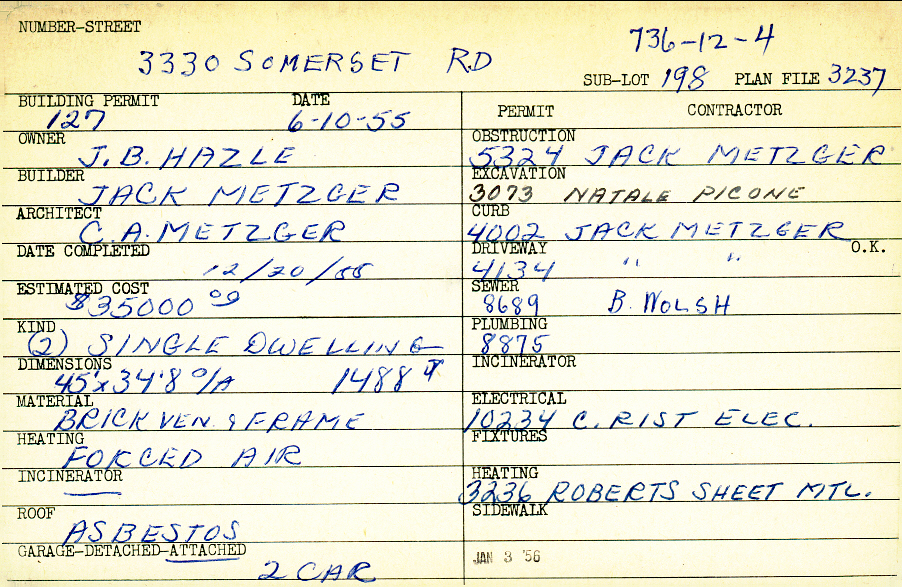 NUMBER-STREET
736-12-4
3330 SOMERSET RD
SUB-LOT 198 PLAN FILE 3237
BUILDING PERMIT DATE
127 6-10-55
PERMIT CONTRACTOR
OWNER
J.B. HAZLE
OBSTRUCTION
5324 JACK METZGER
BUILDER
JACK METZGER
EXCAVATION
3073 NATALE PICONE
ARCHITECT
C.A. METZGER
CURB
4002 JACK METZGER
DATE COMPLETED
12/20/55
DRIVEWAY O.K.
4134 " "
ESTIMATED COST
$35000 00
SEWER
8689 B. WOLSH
KIND
(2) SINGLE DWELLING
PLUMBING
8875
DIMENSIONS
45'x34'8 O/A 1488
INCINERATOR
MATERIAL
BRICK VEN. & FRAME
ELECTRICAL
10234 C. RIST ELEC.
HEATING
FORCED AIR
FIXTURES
INCINERATOR
HEATING
3236 ROBERTS SHEET MTL.
ROOF
ASBESTOS
SIDEWALK
GARAGE-DETACHED-ATTACHED
2 CAR
JAN 3 '56